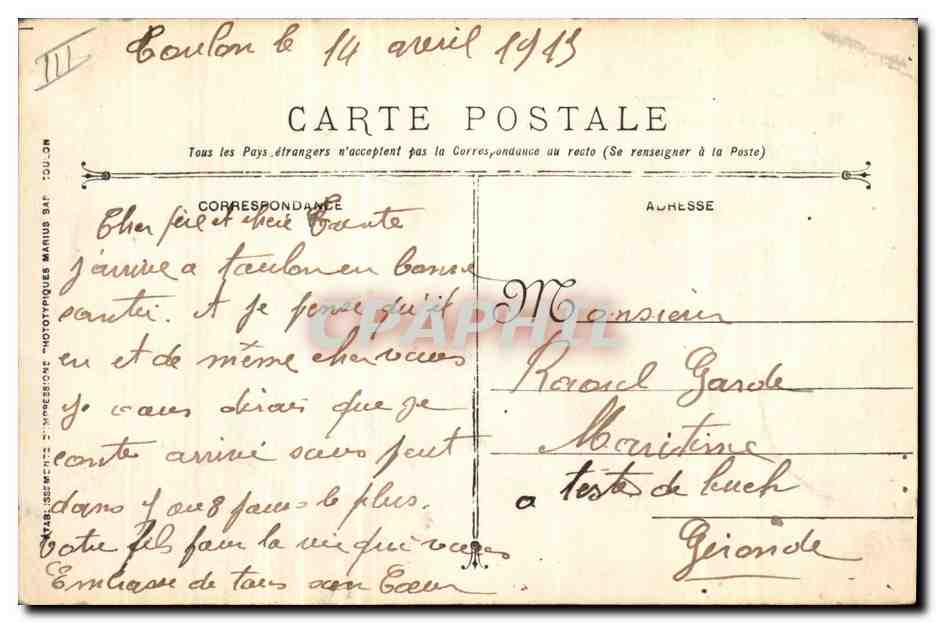 Toulon le 14 avril 1915
III
CARTE POSTALE
Tous les Pays étrangers n'acceptent pas la Correspondance au recto (Se renseigner à la Poste)
CORRESPONDANCE
Cher père et chère Tante
j'arrive a toulon en bonne
santé. A je pense qu'il
en et de même cher vous
je vous dirai que je
conte arrivé sous peut
dans 7 ou 8 jours le plus.
votre fils pour la vie qui vous
Embrasse de tous son Coeur
ADRESSE
Monsieur
Raoul Garde
Maritime
a teste de buch
Gironde
ETABLISSEMENTS D'IMPRESSIONS PHOTOTYPIQUES MARIUS BAR TOULON
CPAPHIL